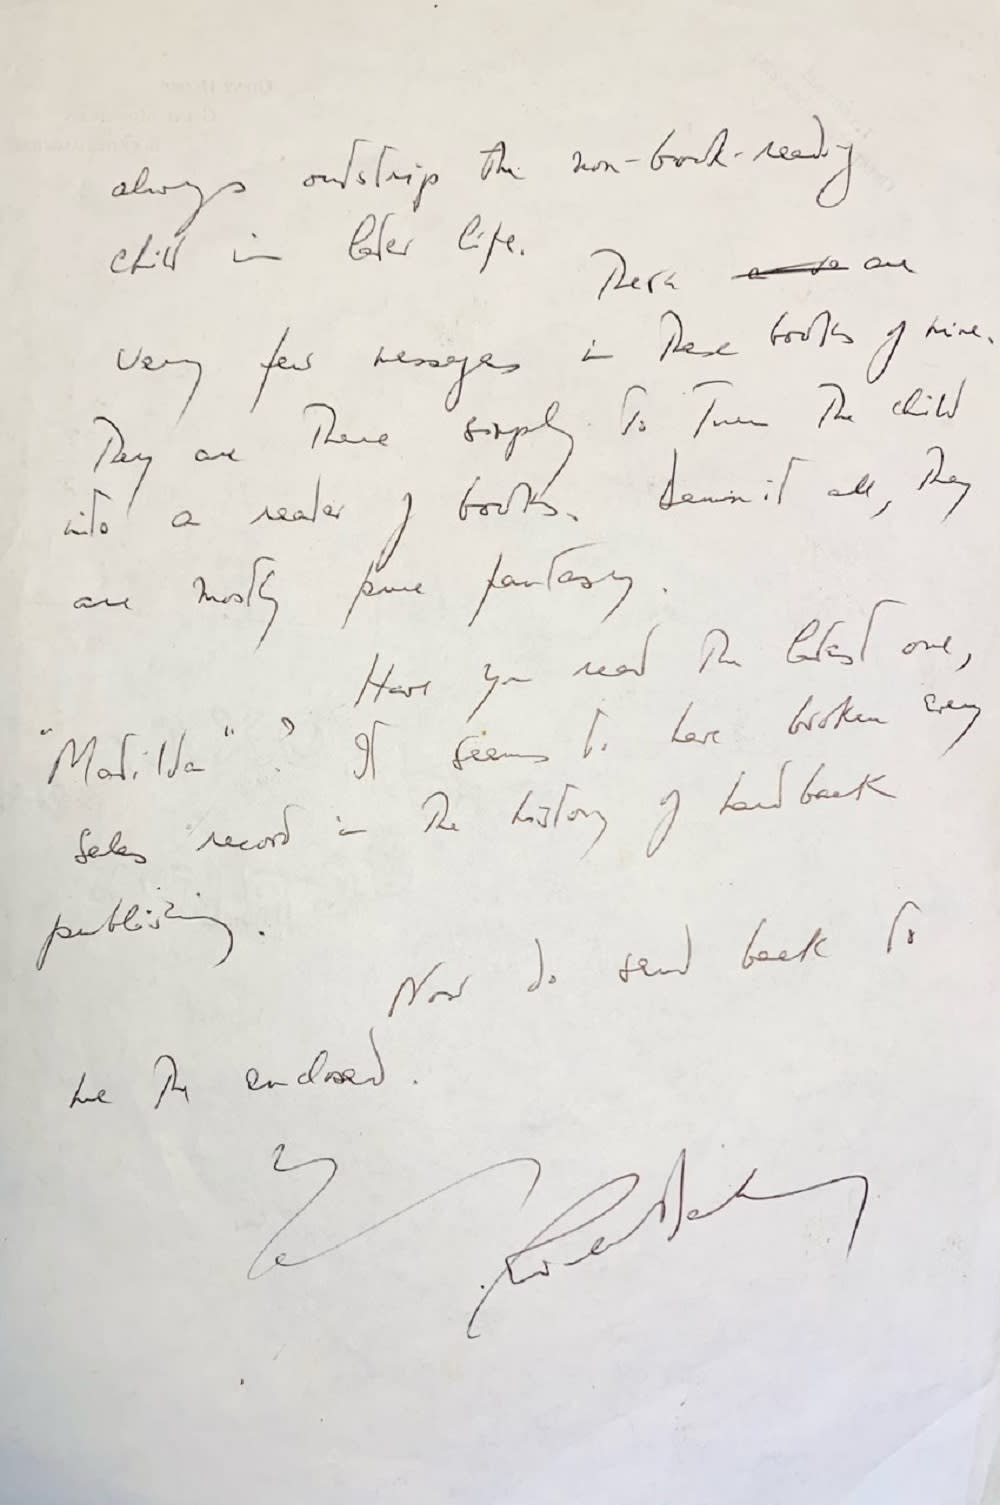 always outstrip the non-book-reading
child in later life.
There are
very few messages in these books of mine.
They are there simply to turn the child
into a reader of books. Damn it all, they
are mostly pure fantasy.
Have you read the latest one,
"Matilda"? It seems to have broken every
sales record in the history of hardback
publishing.
Now do send back to
me the enclosed.
Roald Dahl